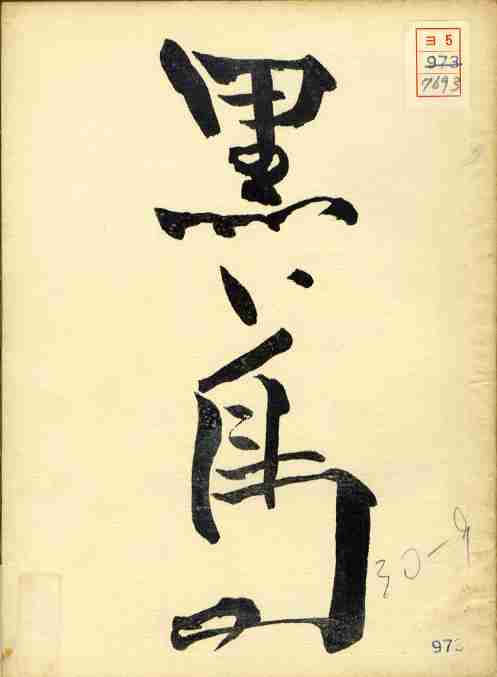 ヨ5
973
7693
黒い馬
30-9